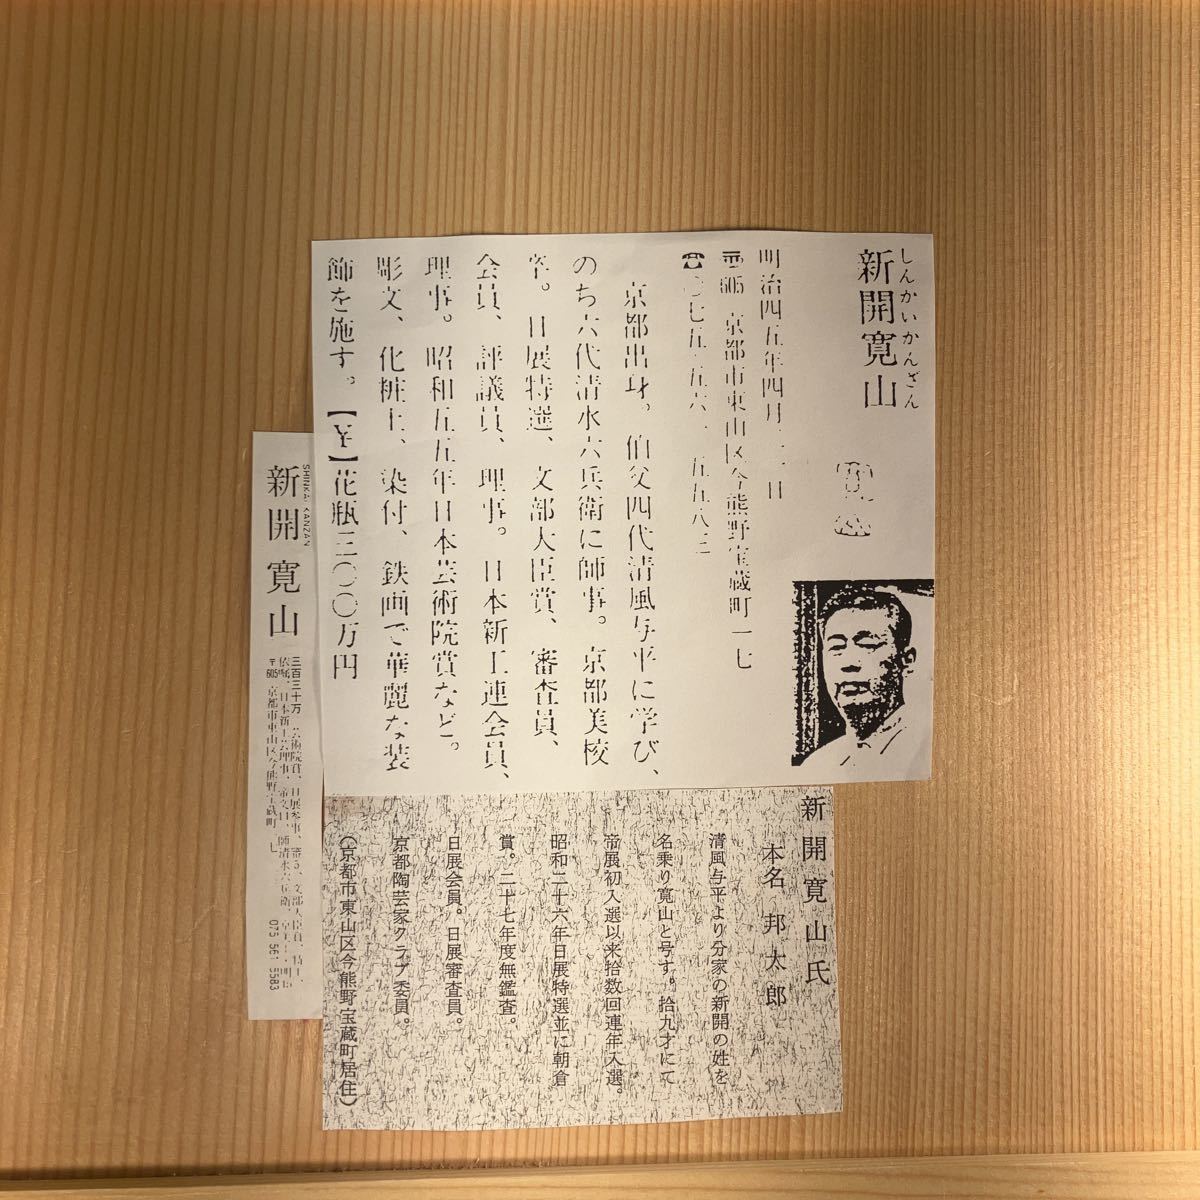 しんかいかんざん
新開寛山
明治四五年四月
〒605 京都市東山区今熊野宝蔵町一七
☎〇七五
京都出身。伯父四代清風与平に学び、
のち六代清水六兵衛に師事。京都美校
卒。日展特選、文部大臣賞、審査員、
会員、評議員、理事。日本新工連会員、
理事。昭和五五年日本芸術院賞など。
彫文、化粧土、染付、鉄画で華麗な装
飾を施す。【¥】花瓶三〇〇万円
新開寛山氏
本名 邦太郎
清風与平より分家の新開の姓を
名乗り寛山と号す。拾九才にて
帝展初入選以来拾数回連年入選。
昭和二十六年日展特選並に朝倉
賞。二十七年度無鑑査。
日展会員。日展審査員。
京都陶芸家クラブ委員。
(京都市東山区今熊野宝蔵町居住)
SHINKAI KANZAN
新開寛山
三百三十万 芸術院賞、日展参事、審員、文部大臣賞、特上、
依嘱、日本新工芸理事、
〒605 京都市東山区今熊野宝蔵町
075 561 5583